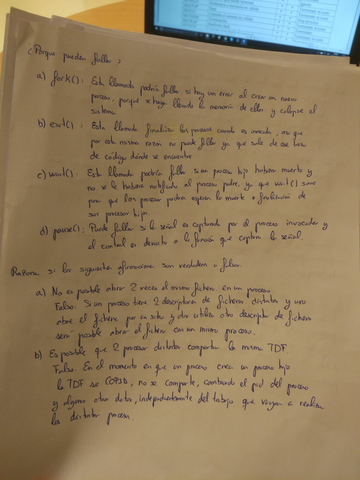 ¿Porque pueden fallar?
a) fork(): Esta llamada podría fallar si hay un error al crear un nuevo
proceso, porque se haya llenado la memoria de ellos y colapse el
sistema.
b) exit(): Esta llamada finaliza los procesos cuando es invocada, así que
por esta misma razón no puede fallar ya que sale de esa linea
de código donde se encuentre.
c) wait(): Esta llamada podría fallar si un proceso hijo hubiera muerto y
no se le hubiera notificado al proceso padre, ya que wait() sirve
para que los procesos padres esperen la muerte o finalización de
sus procesos hijo.
d) pause(): Puede fallar si la señal es capturada por el proceso invocador y
el control es devuelto a la función que captura la señal.
Razona si las siguientes afirmaciones son verdaderas o falsas.
a) No es posible abrir 2 veces el mismo fichero en un proceso
Falso. Si un proceso tiene 2 descriptores de ficheros distintos y uno
abre el fichero por un sitio y otro utiliza otro descriptor de fichero
será posible abrir el fichero en un mismo proceso.
b) Es posible que 2 procesos distintos compartan la misma TDF
Falso. En el momento en que un proceso crea un proceso hijo
la TDF se COPIA, no se comparte, cambiando el pid del proceso
y algunos otros datos, independientemente del trabajo que vayan a realizar
los distintos procesos.